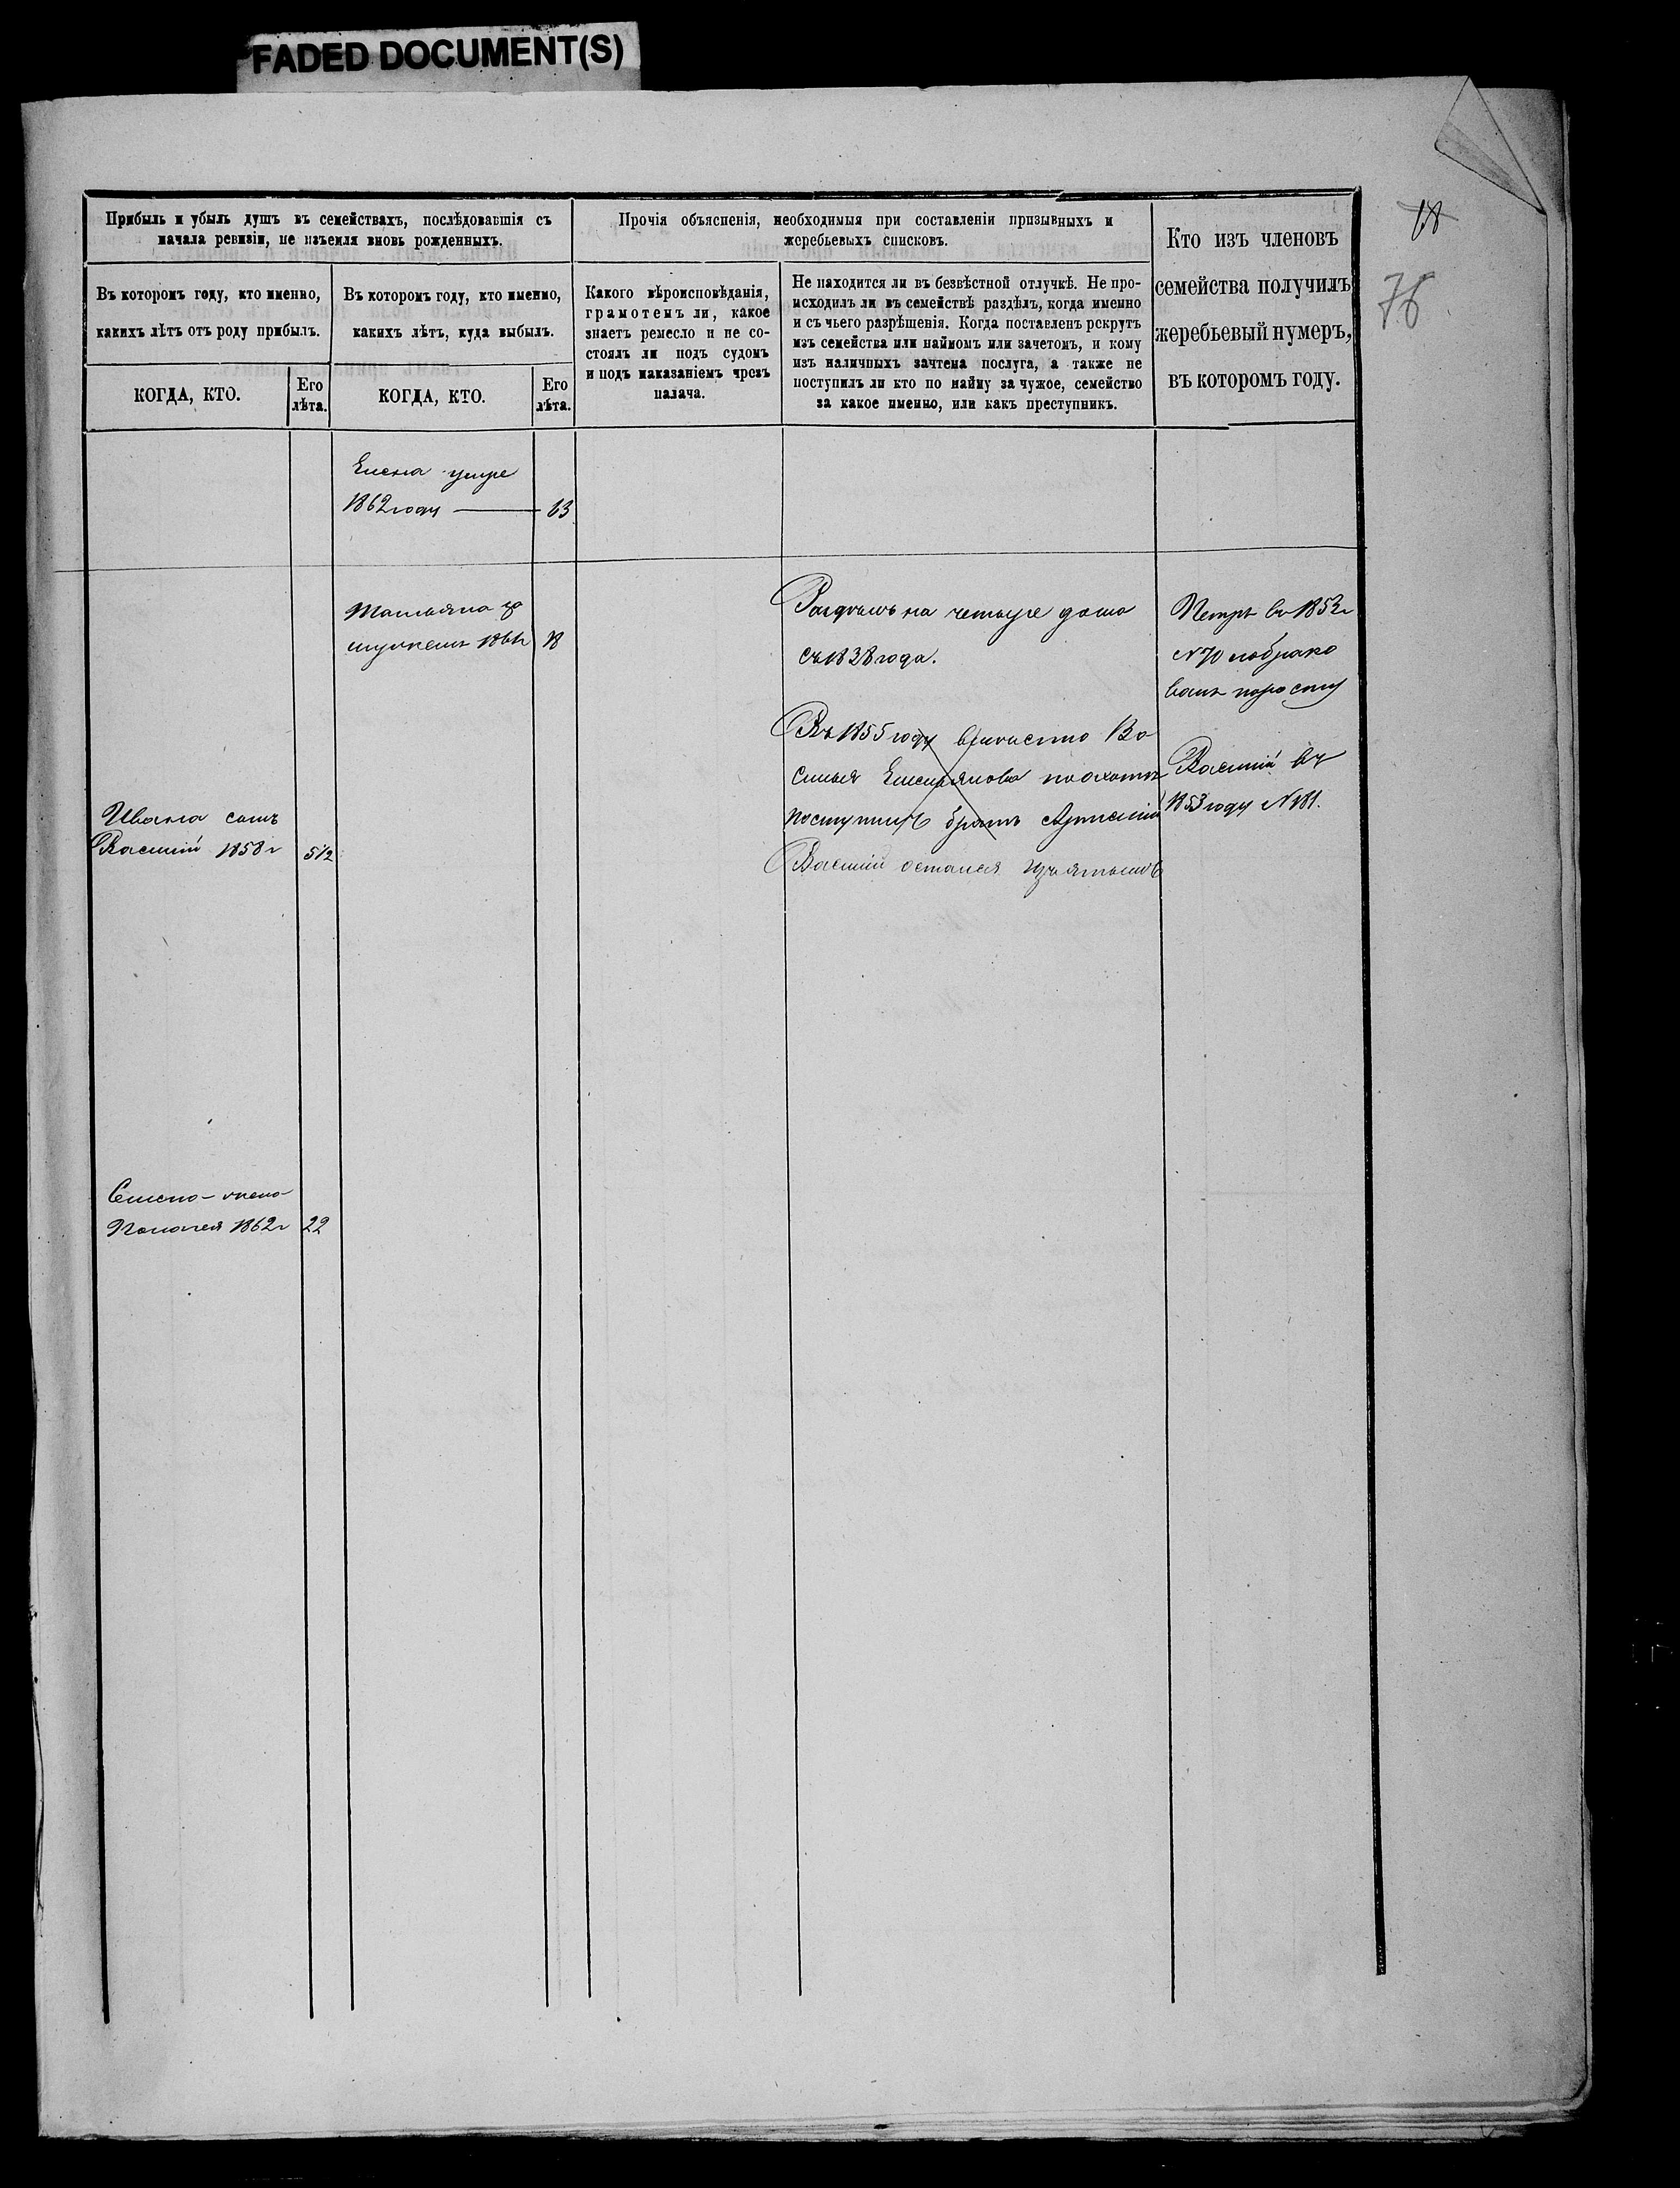 FADED DOCUMENT(S)
Прибыль и убыль душъ въ семействахъ, послѣдовавшія съ
начала ревизіи, не изъемля вновь рожденныхъ.
Въ которомъ году, кто именно,
какихъ лѣтъ отъ роду прибылъ.
КОГДА, КТО.
Его
лѣта.
Въ которомъ году, кто именно,
какихъ лѣтъ, куда выбылъ.
КОГДА, КТО.
Его
лѣта.
Прочія объясненія, необходимыя при составленіи призывныхъ и
жеребьевыхъ списковъ.
Какого вѣроисповѣданія,
грамотенъ ли, какое
знаетъ ремесло и не со-
стоялъ ли подъ судомъ
и подъ наказаніемъ чрезъ
палача.
Не находится ли въ безвѣстной отлучкѣ. Не про-
исходилъ ли въ семействѣ раздѣлъ, когда именно
и съ чьего разрѣшенія. Когда поставленъ рекрутъ
изъ семейства или наймомъ или зачетомъ, и кому
изъ наличныхъ зачтена послуга, а также не
поступилъ ли кто по найму за чужое, семейство
за какое именно, или какъ преступникъ.
Кто изъ членовъ
семейства получилъ
жеребьевый нумеръ,
въ которомъ году.
18
Елена умре
1862 году — 63
Татьяна
18
Раздѣлъ на четыре дома
съ 1838 года.
Петръ въ 1852г
N 70 забрако
ванъ по росту
Въ 1855 году Ва
силья Емельянова по охотѣ
поступилъ братъ
Василій остался
Василій въ
1853 году N 181.
Ивана сынъ
Василій 1858г 5 1/2
жена
Пелагея 1862г 22